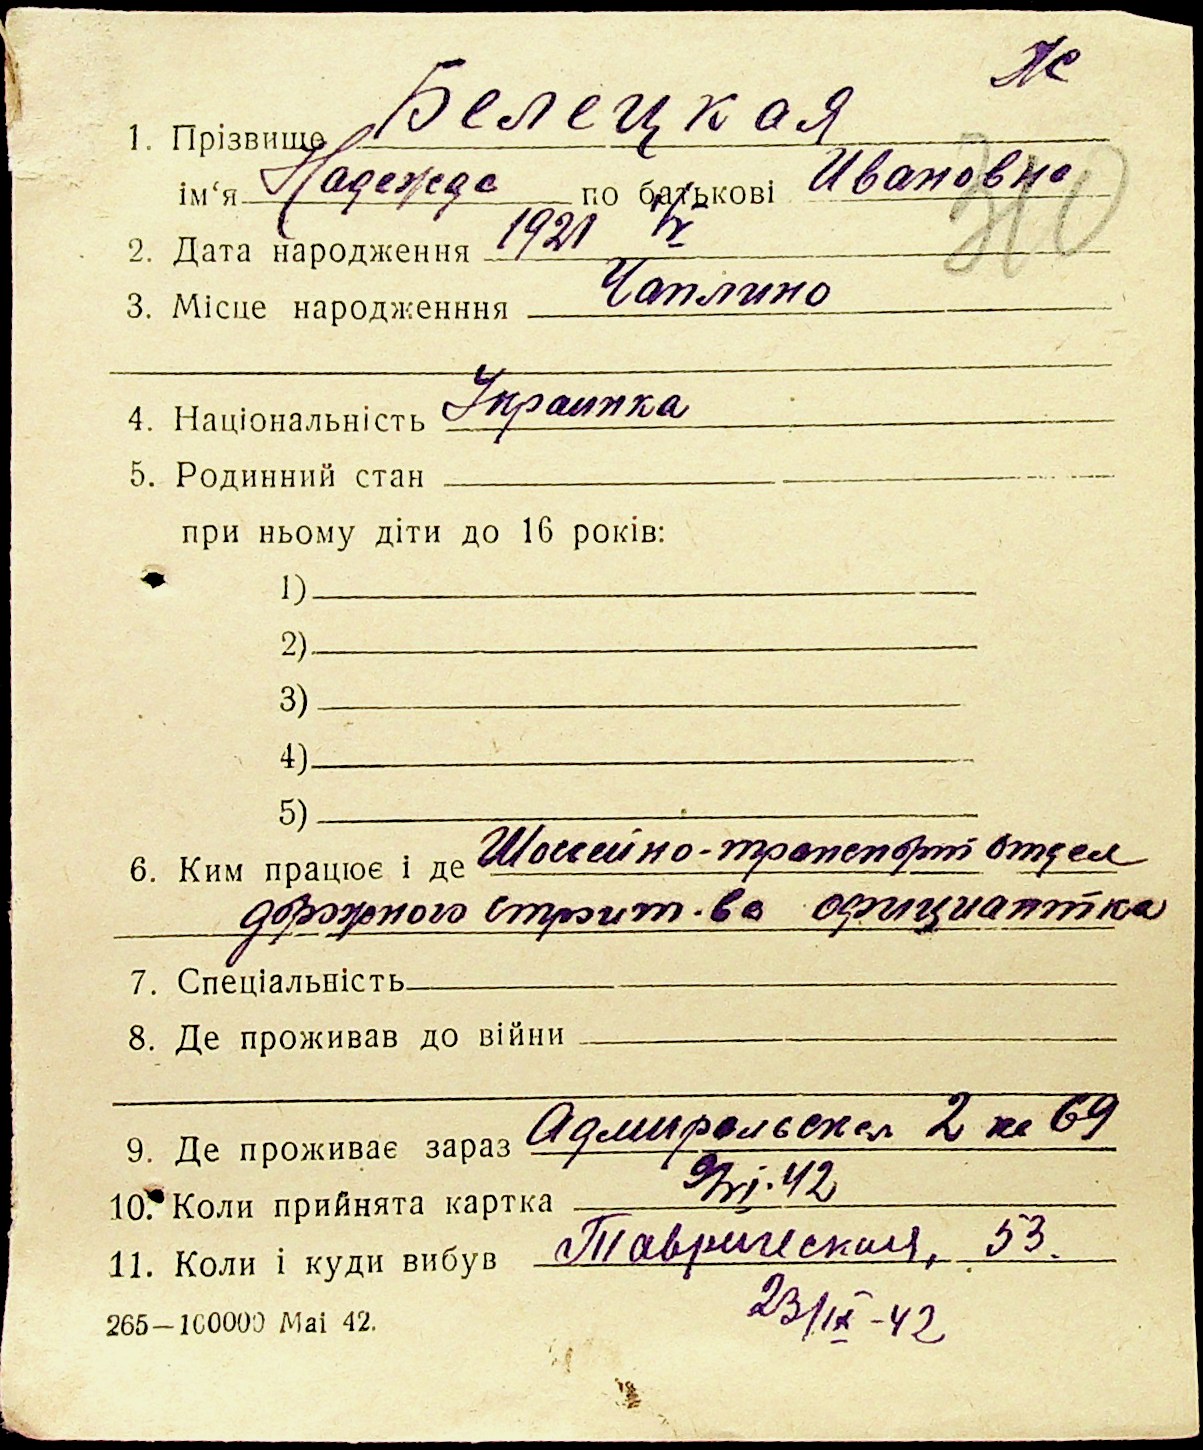 Ж
1. Прізвище Белецкая
ім‘я Надежда по батькові Ивановна
2. Дата народження 1921
3. Місце народженння Чаплино
4. Національність Украинка
5. Родинний стан
при ньому діти до 16 років:
1)
2)
3)
4)
5)
6. Ким працює і де Шоссейно-транспорт отдел
дорожного строит-ва официантка
7. Спеціальність
8. Де проживав до війни
9. Де проживає зараз Адмиральская 2 кв 69
10. Коли прийнята картка 9/VI-42
11. Коли і куди вибув Таврическая, 53.
265—100000 Маі 42. 23/IX-42